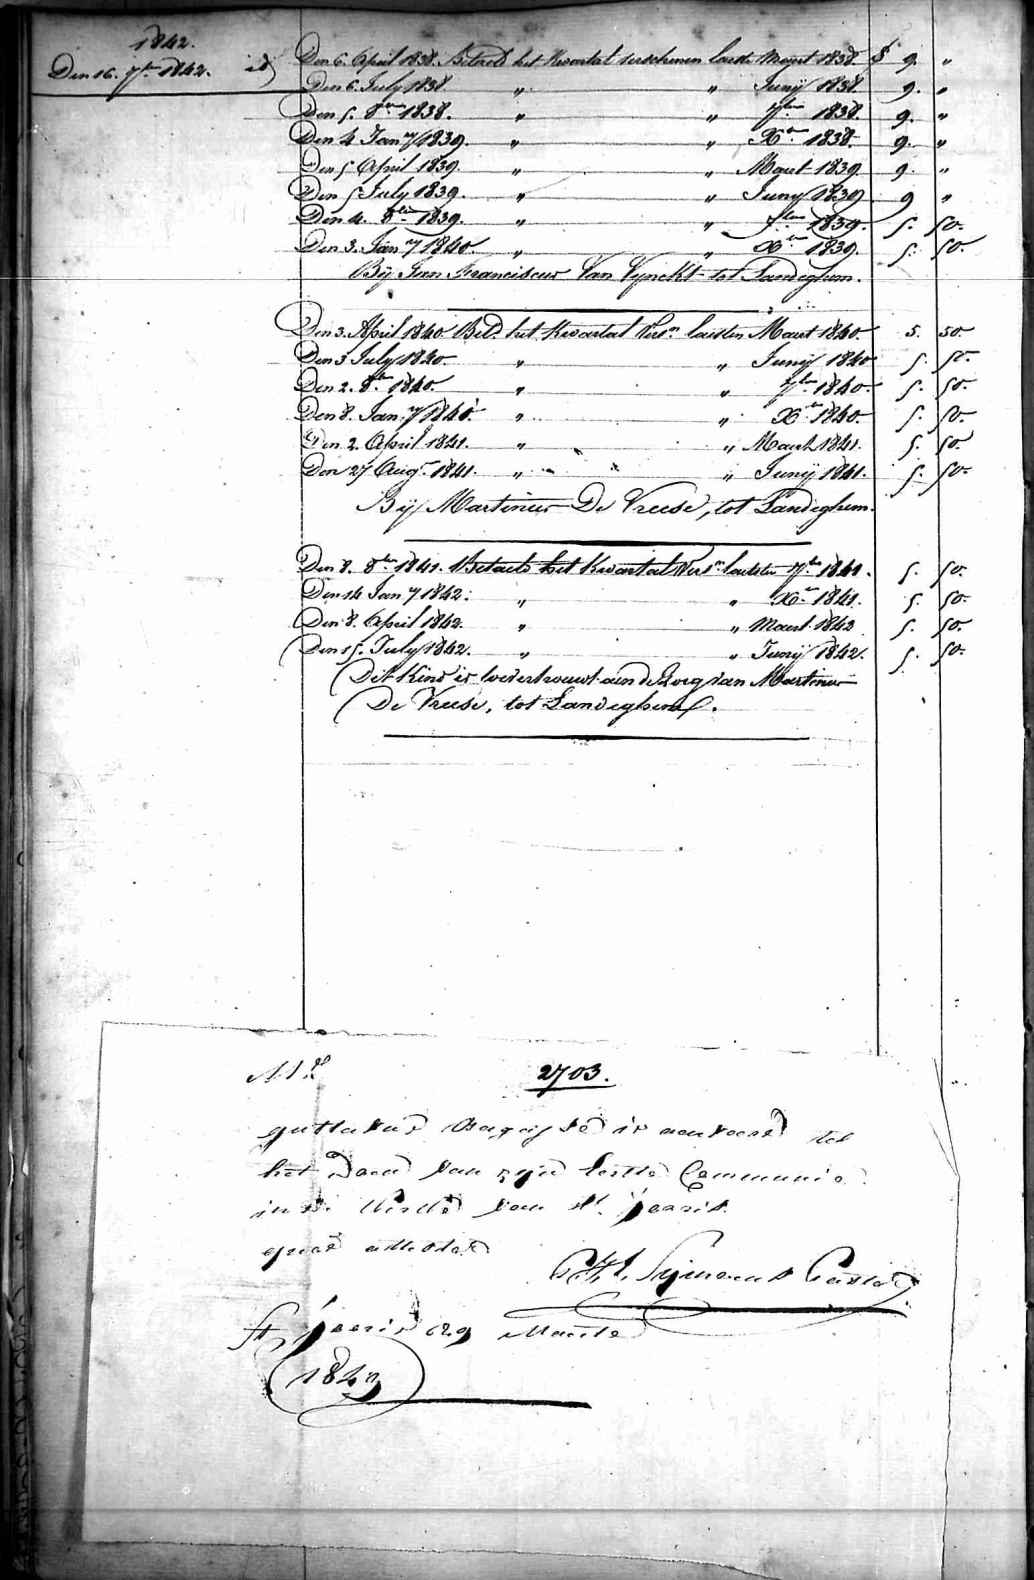 1842.
Den 16. 7br 1842. id
Den 6. April 1838. Betaeld het Kwartal verschenen laeste Maert 1838. § 9. "
Den 6. July 1838. " " Junij 1838. 9. "
Den 5. 8bre 1838. " " 7bre 1838. 9. "
Den 4 Jany 1839. " " Xbre 1838. 9. "
Den 5 April 1839. " " Maert 1839. 9. "
Den 5 July 1839. " " Juny 1839. 9 "
Den 4. 8bre 1839. " " 7bre 1839. 5. 50.
Den 3. Jany 1840. " " Xbre 1839. 5. 50.
Bij Jean Franciscus Van Vynckt tot Landeghem.
Den 3. April 1840 Betd. het Kwartal Versn. laisten Maert 1840. 5. 50.
Den 3 July 1840. " " Junij 1840 5. 50.
Den 2. 8bre 1840. " " 7bre 1840. 5. 50.
Den 8. Jany 1840. " " Xbre 1840. 5. 50.
Den 2. April 1841. " " Maert 1841. 5. 50.
Den 27 Augt. 1841. " " Junij 1841. 5. 50.
Bij Martinus De Vreese, tot Landeghem.
Den 8. 8bre 1841. Betaelt het Kwartal Versn. laetsten 7bre 1841. 5. 50.
Den 14 Jany 1842. " " Xbre 1841. 5. 50.
Den 8. April 1842. " " Maert 1842 5. 50.
Den 15. July 1842. " " Junij 1842. 5. 50.
Dit Kind is toevertrouwt aen de Zorg van Martinus
De Vreese, tot Landeghem.
2703.
is aenveerd tot
het Doen van zijn Eerste Communie
in de van St. Jooris
quod attestor
St Jooris 29 Maerte
1843